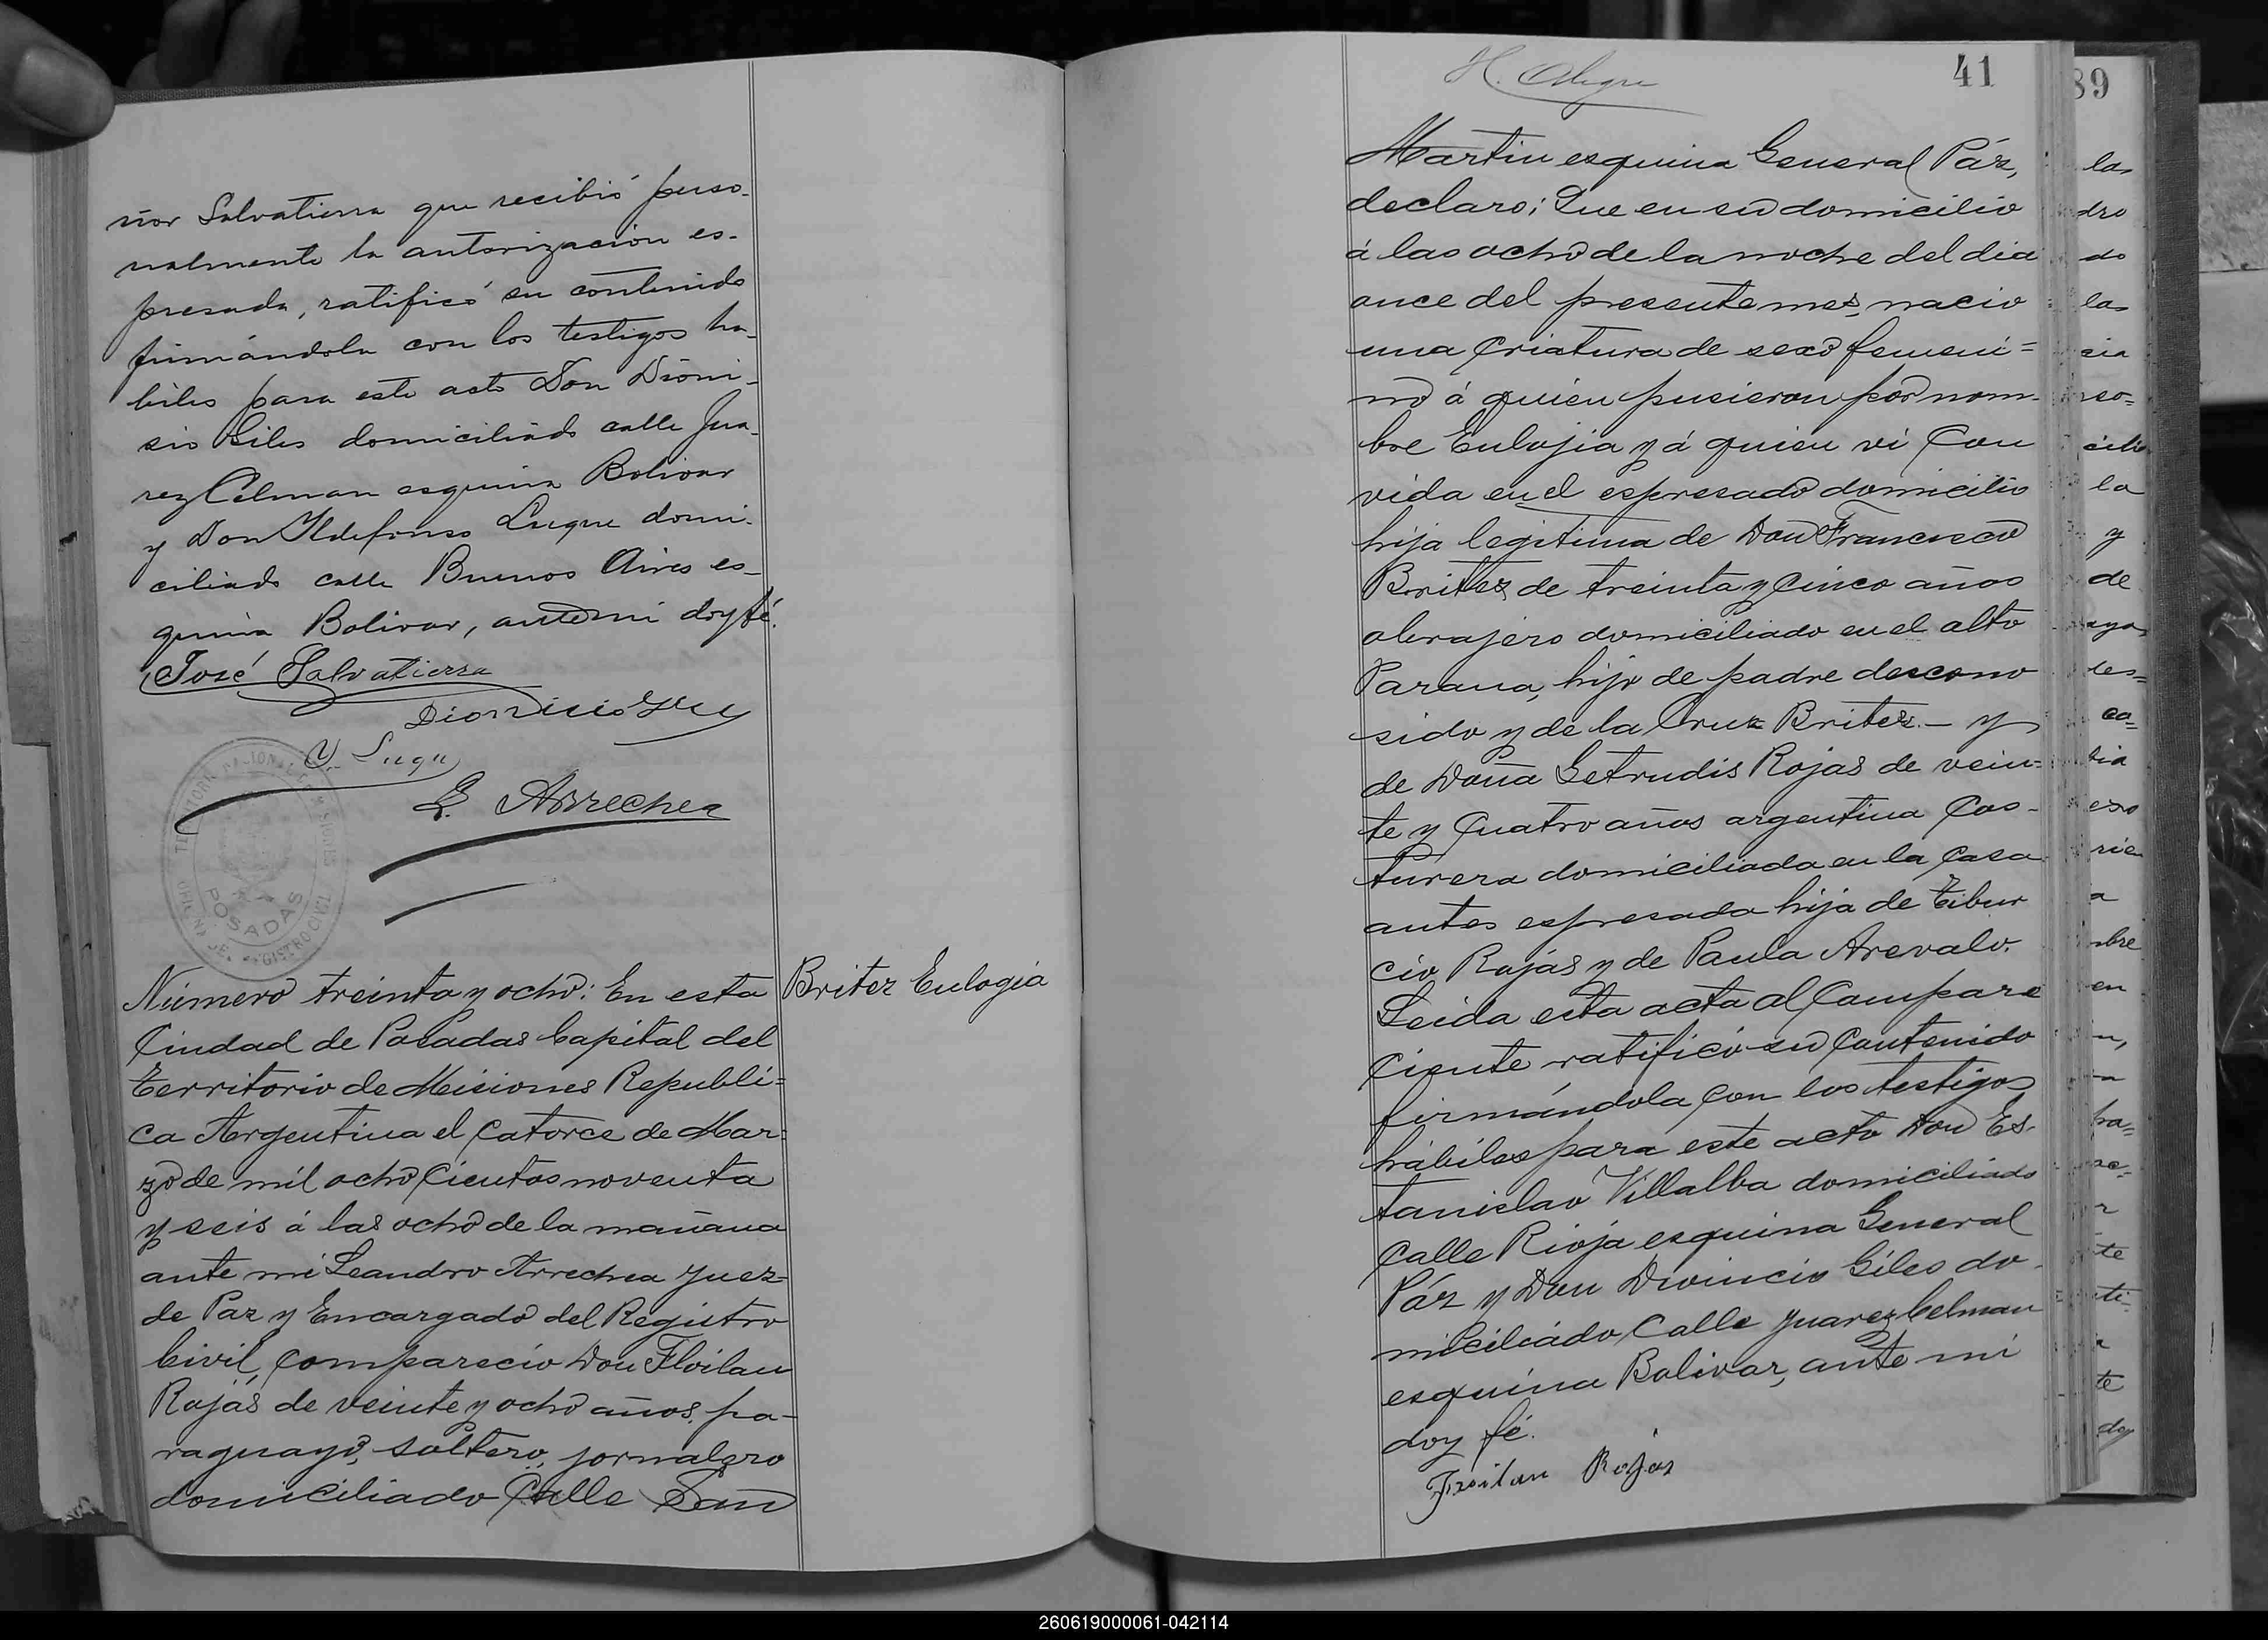 ñor Salvatierra que recibió perso-
nalmente la autorizacion es-
presada, ratificó su contenido
firmándola con los testigos ha-
biles para este acto Don Dioni-
sio Giles domiciliado calle Jua-
rez Celman esquina Bolivar
y Don Ildefonso Luque domi-
ciliado calle Buenos Aires es-
quina Bolivar, ante mi doy fé.
José Salvatierra
Dionicio
Y. Luqu
L. Arrechea
POSADAS
Número treinta y ocho: En esta
Ciudad de Posadas Capital del
Territorio de Misiones Republi=
ca Argentina el Catorce de Mar=
zo de mil ocho Cientos noventa
y seis á las ocho de la mañana
ante mi Leandro Arrechea Juez
de Paz y Encargado del Registro
Civil, Comparecio Don Floilan
Rojás de veinte y ocho años, pa-
raguayo, soltero, jornalero
domiciliado Calle San
Britez Eulogia
41
H. Alegre
Martin esquina General Páz,
declaro; Que en su domicilio
á las ocho de la noche del dia
once del presente mes, nacio
una Criatura de sexo femeni=
no á quien pusieron por nom-
bre Eulojia y á quien vi Con
vida en el espresado domicilio
hija legitima de Don Francisco
Britez de treinta y Cinco años
obrajero domiciliado en el alto
Parana, hijo de padre descono
sido y de la Cruz Britez.- y
de Doña Getrudis Rojas de vein=
te y Cuatro años argentina Cos-
turera domiciliada en la Casa
antes espresada hija de Tibur
cio Rojás y de Paula Arevalo.
Leida esta acta al Compare
Ciente ratificó su Contenido
firmándola Con los testigos
hábiles para este acto Don Es-
tanislao Villalba domiciliado
Calle Rioja esquina General
Páz y Don Dionicio Giles do-
miciliádo Calle Juarez Celman
esquina Bolivar, ante mi
doy fé.
Froilan Rojas
89
las
dro
do
las
cia
so-
cilio
la
y
de
des=
co=
exo
a
mbre
en
ha=
te
te
doy
260619000061-042114